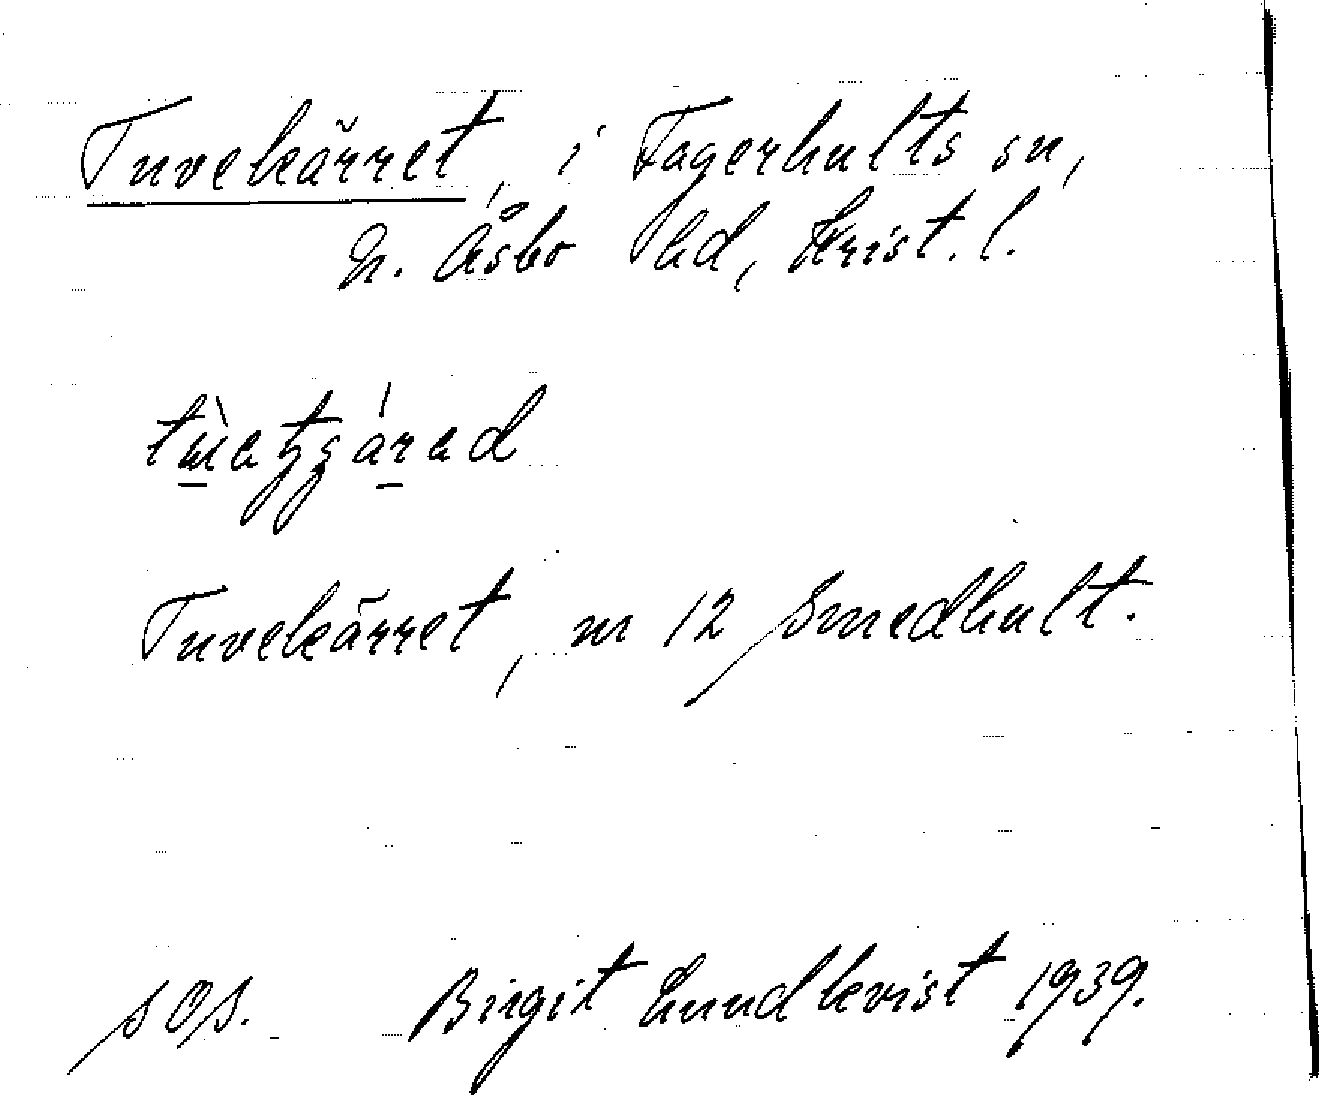 Tuvekärret, i Fagerhults sn,
N. Åsbo hd, Krist. l.
Tuvekärret, nr 12 Smedhult.
SOS. Birgit Lundkvist 1939.